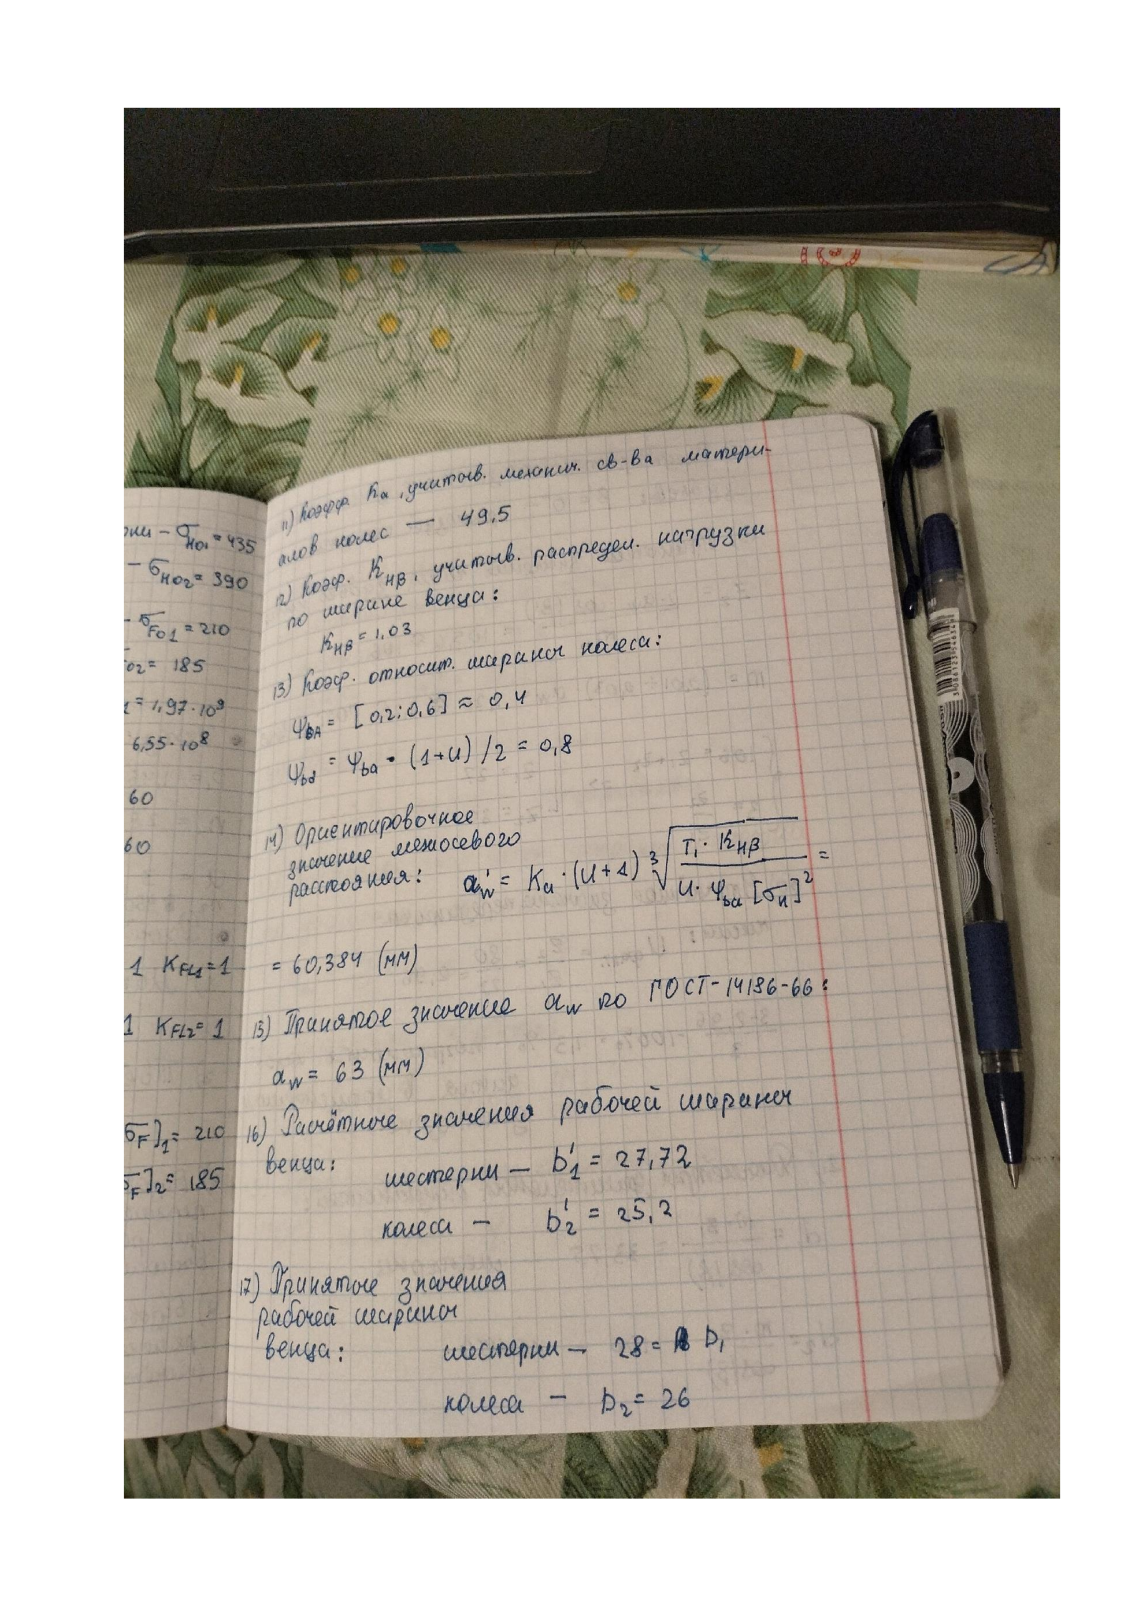 рни – σно1 = 435
– σно2 = 390
– σFO1 = 210
FO2 = 185
1 = 1,97·10⁹
6,55·10⁸
60
60
1 KFL1 = 1
1 KFL2 = 1
σF]1 = 210
σF]2 = 185
11) Коэфф. Ka, учитыв. механич. св-ва матери-
алов колес — 49,5
12) Коэф. KHβ, учитыв. распредел. нагрузки
по ширине венца:
KHβ = 1,03
13) Коэф. относит. ширины колеса:
ψba = [0,2; 0,6] ≈ 0,4
ψbd = ψba · (1+U) / 2 = 0,8
14) Ориентировочное
значение межосевого
расстояния: a'w = Ka · (U+1) ³√(T1 · KHβ / U · ψba [σH]²) =
= 60,384 (мм)
15) Принятое значение aw по ГОСТ-14186-66:
aw = 63 (мм)
16) Расчётные значения рабочей ширины
венца: шестерни — b'1 = 27,72
колеса — b'2 = 25,2
17) Принятые значения
рабочей ширины
венца: шестерни — 28 = b1
колеса — b2 = 26